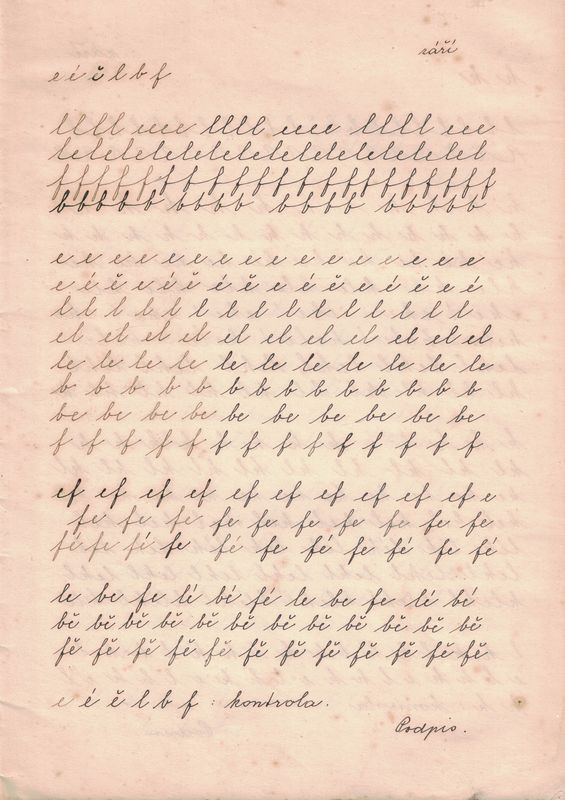 září
e é ě l b f
llll eee llll eee llll eee
lelelelelelelelelelelelelelelel
fffffffffffffffffffff
bbbbb bbbb bbbb bbbbb
e e e e e e e e e e e e e e e e
e é ě e é ě é é ě e é ě e é ě e é
l l l l l l l l l l l l l l l l
el el el el el el el el el el el
le le le le le le le le le le le
b b b b b b b b b b b b b b
be be be be be be be be be be
f f f f f f f f f f f f f f f
ef ef ef ef ef ef ef ef ef ef e
fe fe fe fe fe fe fe fe fe fe
fé fe fé fe fé fe fé fe fé fe fé
le be fe lé bé fé le be fe lé bé
bě bě bě bě bě bě bě bě bě bě bě
fě fě fě fě fě fě fě fě fě fě fě fě
e é ě l b f : kontrola.
Podpis.